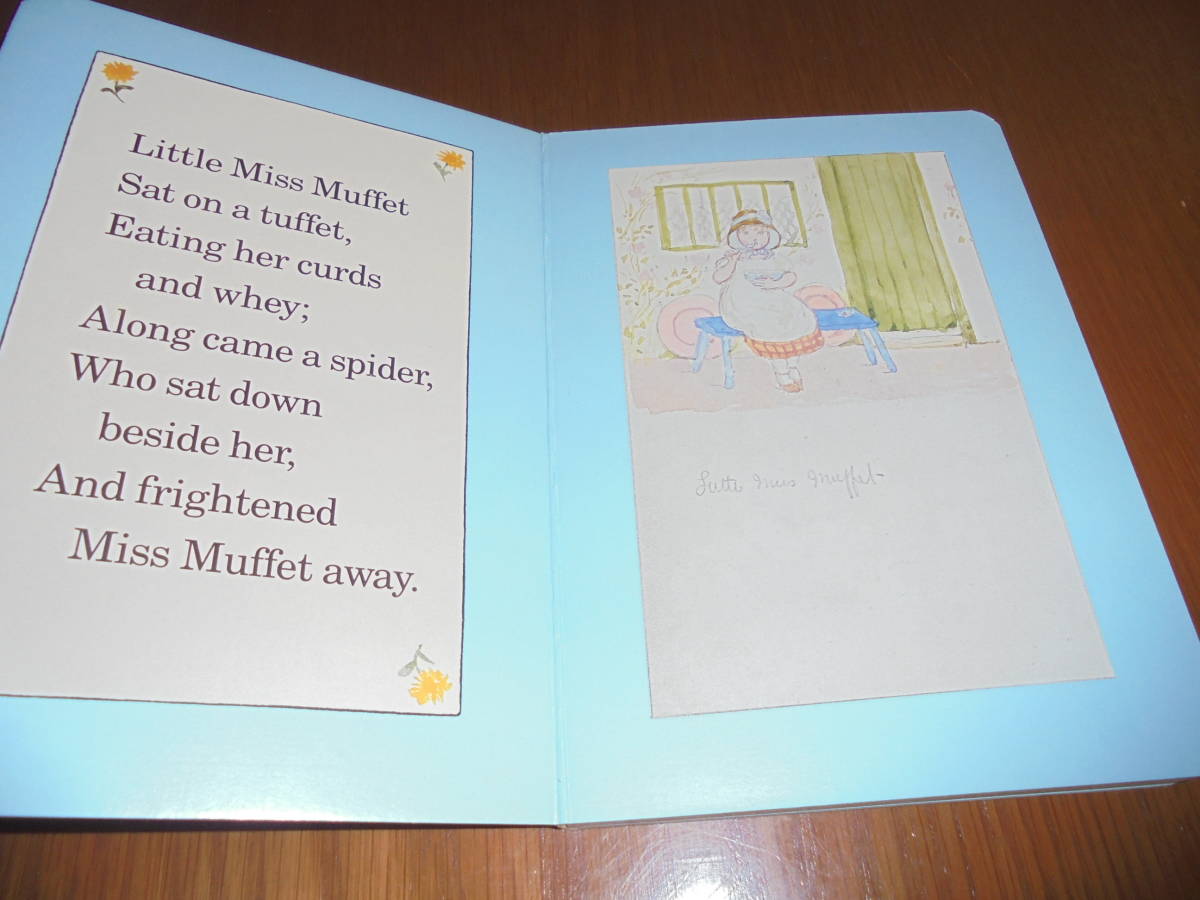 Little Miss Muffet
Sat on a tuffet,
Eating her curds
and whey;
Along came a spider,
Who sat down
beside her,
And frightened
Miss Muffet away.
Little Miss Muffet